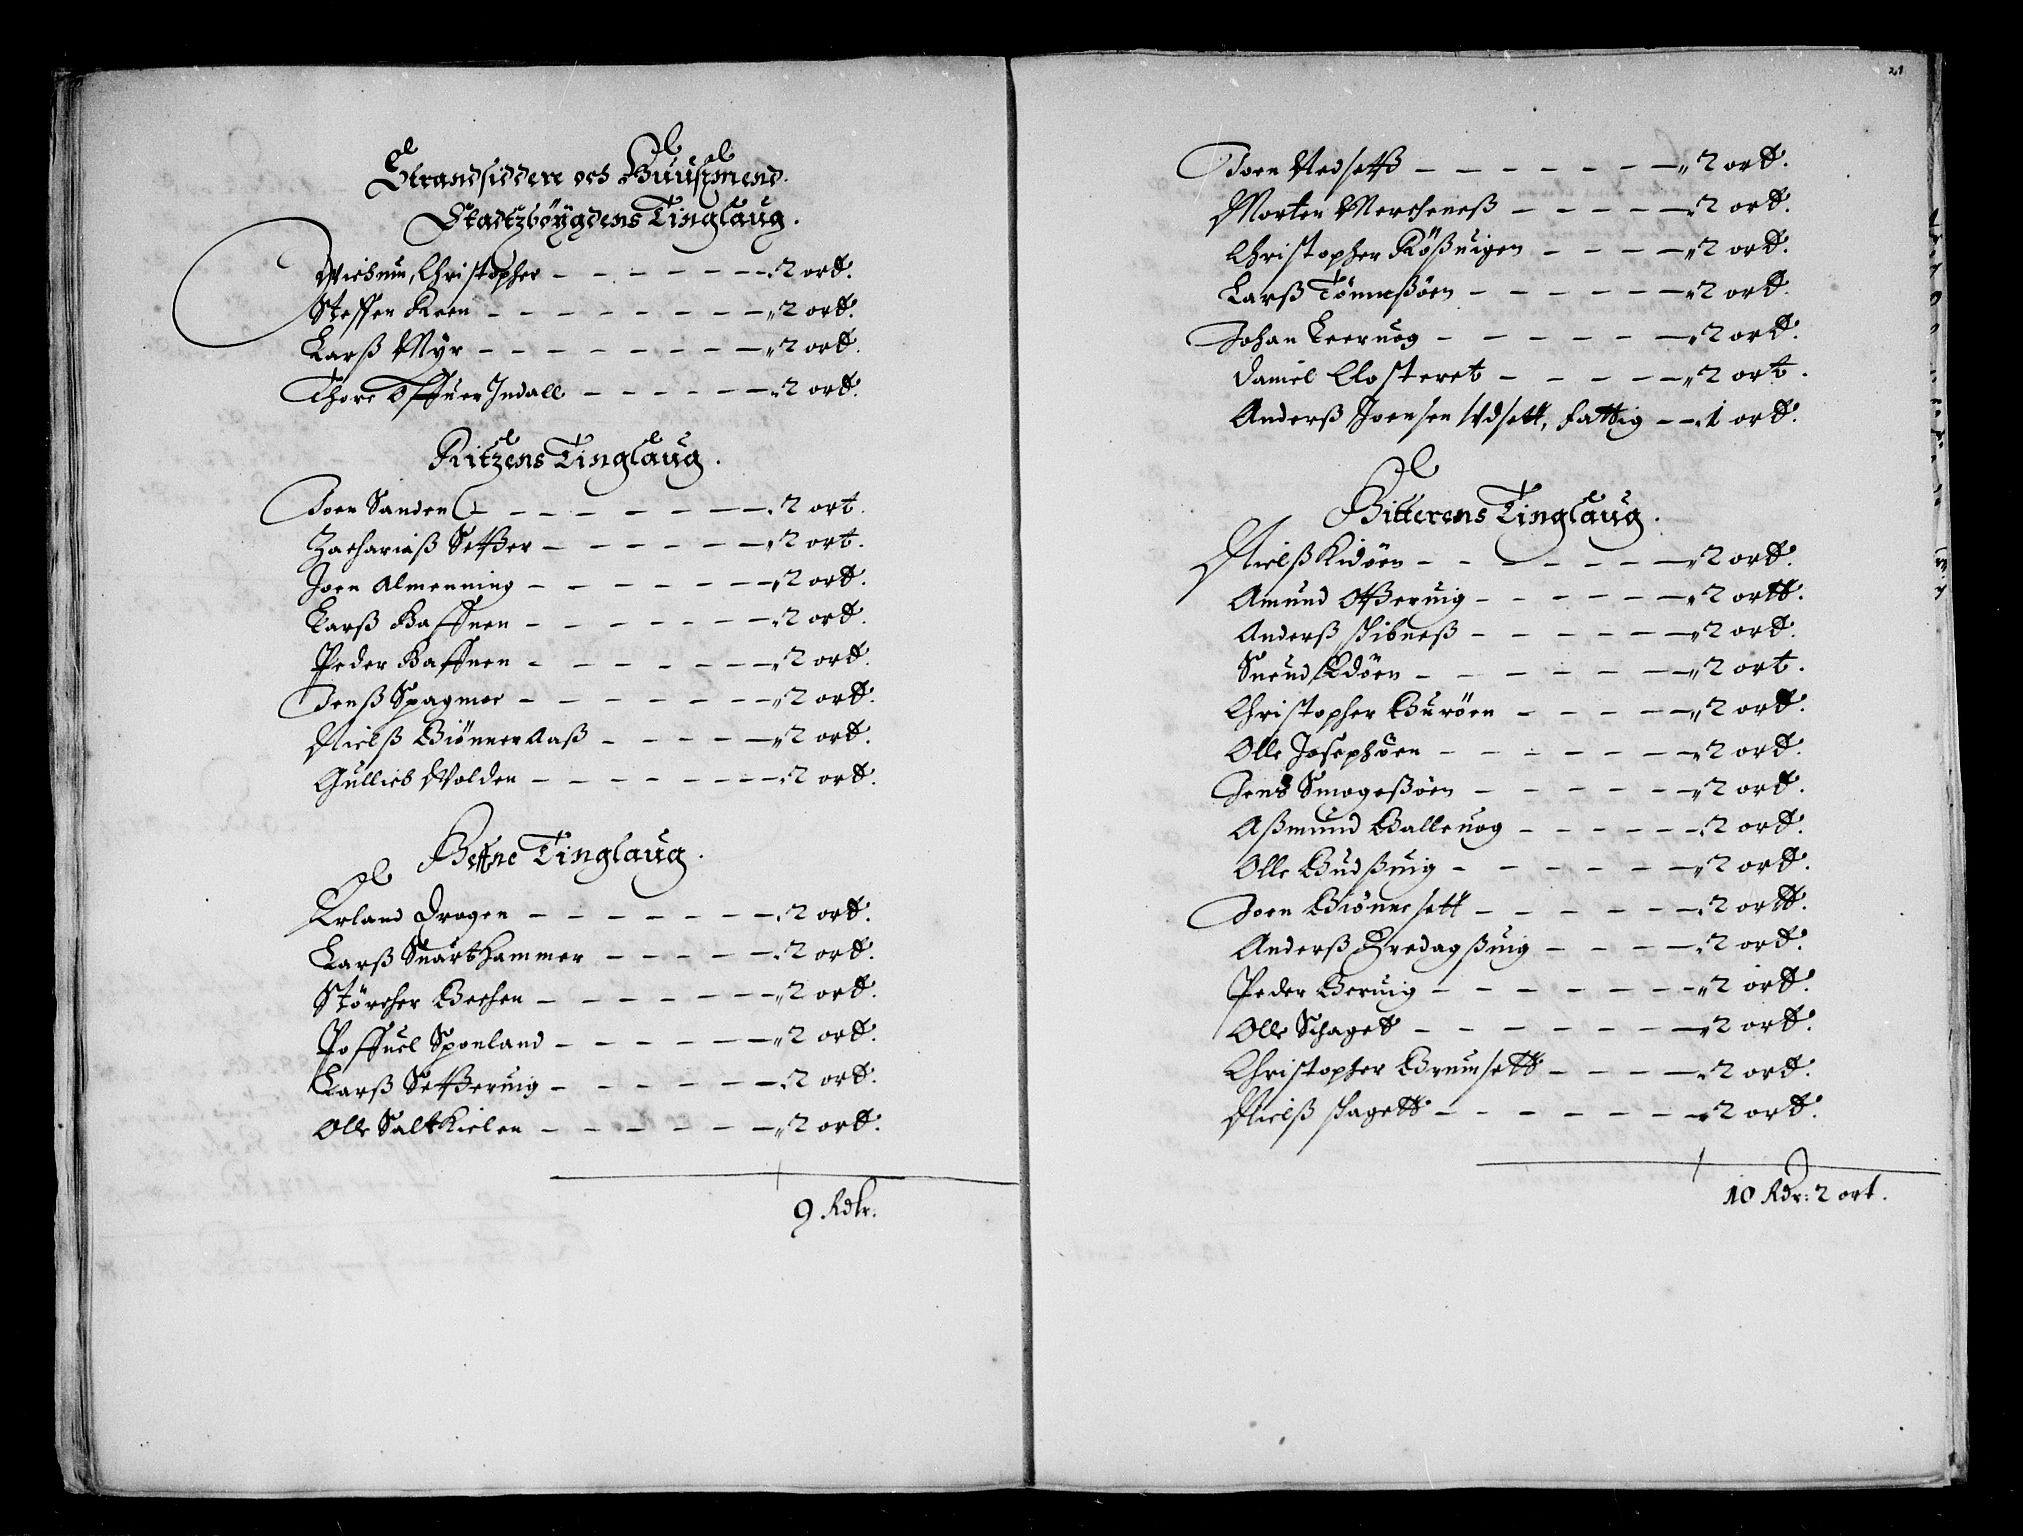 Strandsiddere och Huuszmend.
Stadtzböygdens Tinglaug.
Wichnin, Christopher - - - - - - 2 ort.
Steffen Reen - - - - - - - - 2 ort.
Larß Myr - - - - - - - - 2 ort.
Thore Offuer Indall - - - - - - 2 ort.
Ritzens Tinglaug.
Joen Sanden - - - - - - - 2 ort.
Zachariaß Setther - - - - - - 2 ort.
Joen Almenning - - - - - - - 2 ort.
Larß Haffnen - - - - - - - 2 ort.
Peder Haffnen - - - - - - - 2 ort.
Jenß Spagmoe - - - - - - - 2 ort.
Nielß Biönneraaß - - - - - 2 ort.
Gullich Wolden - - - - - - - 2 ort.
Beffne Tinglaug.
Erland Dragen - - - - - - - 2 ort.
Larß Suarthammer - - - - - 2 ort.
Störcher Bechen - - - - - - 2 ort.
Poffuel Sponland - - - - - - 2 ort.
Larß Settheruig - - - - - - 2 ort.
Olle Saltkielen - - - - - - 2 ort.
9 Rdlr.
21
Joen Nedsett - - - - - - - 2 ort.
Morten Mercheneß - - - - - 2 ort.
Christopher Rößuigen - - - - 2 ort.
Larß Tönneßöen - - - - - - 2 ort.
Johan Leeruog - - - - - - - 2 ort.
Daniel Closteret - - - - - 2 ort.
Anderß Joensen Udsett, fattig - - 1 ort.
Bitterens Tinglaug.
Nielß Kidöen - - - - - - - 2 ort.
Amund Ottheruig - - - - - - 2 ortt.
Anderß skibneß - - - - - - 2 ort.
Suend Edöen - - - - - - - 2 ort.
Christopher Buröen - - - - - 2 ort.
Olle Josephöen - - - - - - - 2 ort.
Jens Smogeßöen - - - - - - 2 ort.
Aßmund Balleuog - - - - - 2 ort.
Olle Budßuig - - - - - - - 2 ort.
Joen Biönnesett - - - - - - 2 ortt.
Anderß Fredagßuig - - - - 2 ort.
Peder Beruig - - - - - - - 2 ort.
Olle Schaget - - - - - - - 2 ort.
Christopher Brunsett - - - - 2 ort.
Nielß skagett - - - - - - - 2 ort.
10 Rdr: 2 ort.